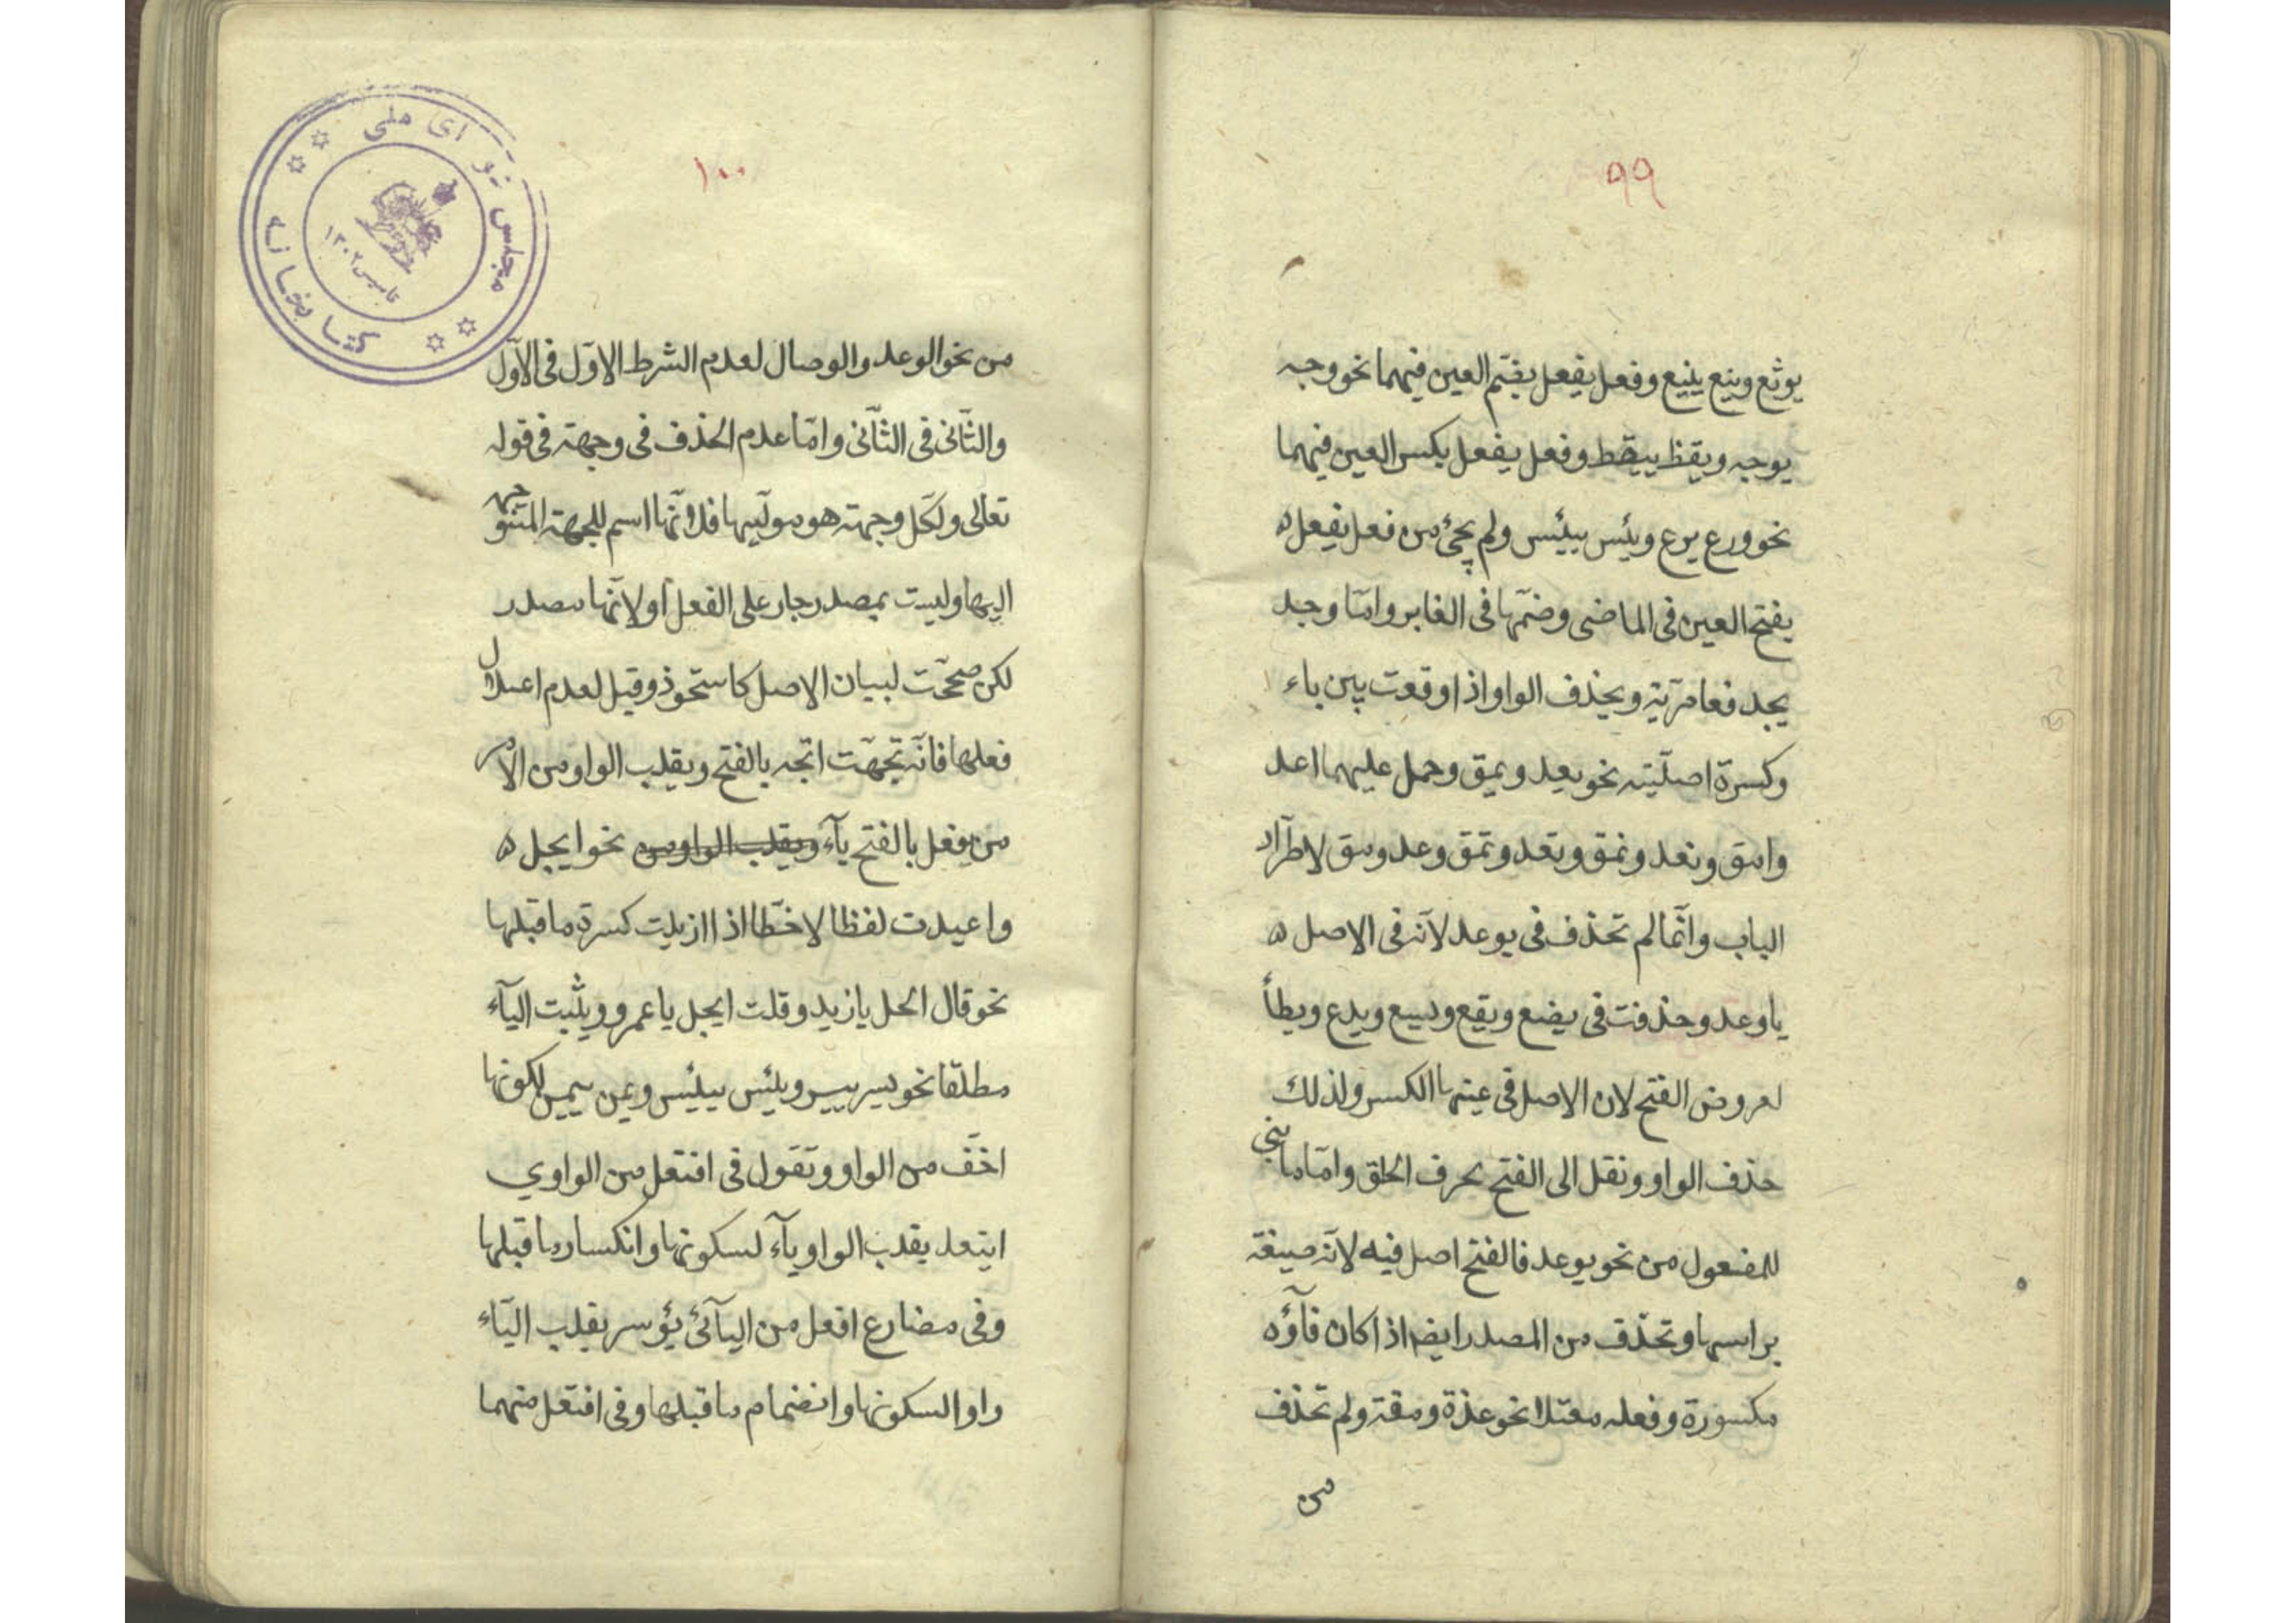 ٩٩
يوثع وينع يينع وفعل يفعل بضم العين فيهما نحو وجه
يوجه ويقظ ييقظ وفعل يفعل بكسر العين فيهما
نحو ورع يرع ويئس ييئس ولم يجئ من فعل يفعل
بفتح العين فى الماضى وضمّها فى الغابر وامّا وجد
يجد فعامريّة ويحذف الواو اذا وقعت بين ياء
وكسرة اصليّته نحو يعد ويمق وحمل عليهما اعد
وامق ونعد ونمق وتعد وتمق وعد ومق لاطراد
الباب وانّما لم تحذف فى يوعد لانّه فى الاصل
ياوعد وحذفت فى يضع ويقع ويسع ويدع ويطأ
لعروض الفتح لان الاصل فى عينها الكسر ولذلك
حذف الواو ونقل الى الفتح بحرف الحلق وامّا ما بنى
للمفعول من نحو يوعد فالفتح اصل فيه لانّه صيغة
براسها وتحذف من المصدر ايضا اذا كان فآؤه
مكسورة وفعله معتلا نحو عدة ومقة ولم تحذف
من
١٠٠
من نحو الوعد والوصال لعدم الشرط الاوّل فى الاوّل
والثّانى فى الثّانى وامّا عدم الحذف فى وجهة فى قوله
تعالى ولكلّ وجهة هو مولّيها فلانّها اسم للجهة المتوجه
اليها وليست بمصدر جار على الفعل او لانّها مصدر
لكن صححّت لبيان الاصل كاستحوذ وقيل لعدم اعتلال
فعلها فانّه تجهّت اتّجه بالفتح ويقلب الواو من الامر
من يفعل بالفتح يآء ويقلب الواو من نحو ايجل
واعيدت لفظا لا خطّا اذا ازيلت كسرة ما قبلها
نحو قال انحل يا زيد وقلت ايجل يا عمرو ويثبت اليآء
مطلقا نحو يسر ييسر ويئس ييئس ويمن ييمن لكونها
اخفّ من الواو وتقول فى افتعل من الواوي
ايتعد يقلب الواو يآء لسكونها وانكسار ما قبلها
وفى مضارع افعل من اليآئى يؤسر بقلب اليآء
واوا لسكونها وانضمام ما قبلها وفى افتعل منهما
كتابخانه
مجلس شورای ملی
تاسیس ۱۳۰۲